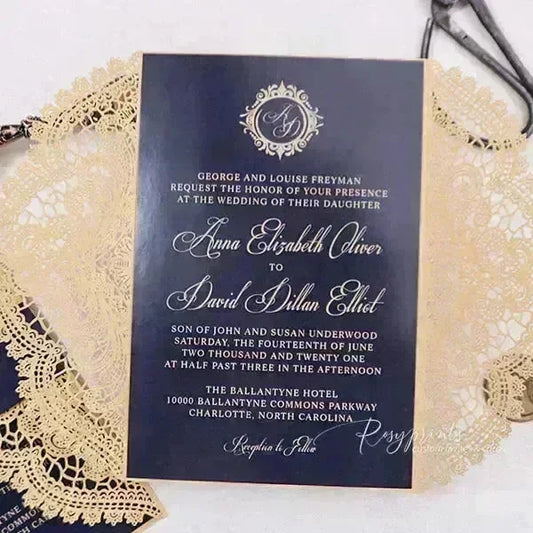 AD
GEORGE AND LOUISE FREYMAN
REQUEST THE HONOR OF YOUR PRESENCE
AT THE WEDDING OF THEIR DAUGHTER
Anna Elizabeth Oliver
TO
David Dillan Elliot
SON OF JOHN AND SUSAN UNDERWOOD
SATURDAY, THE FOURTEENTH OF JUNE
TWO THOUSAND AND TWENTY ONE
AT HALF PAST THREE IN THE AFTERNOON
THE BALLANTYNE HOTEL
10000 BALLANTYNE COMMONS PARKWAY
CHARLOTTE, NORTH CAROLINA
Reception to Follow
Rosyprints